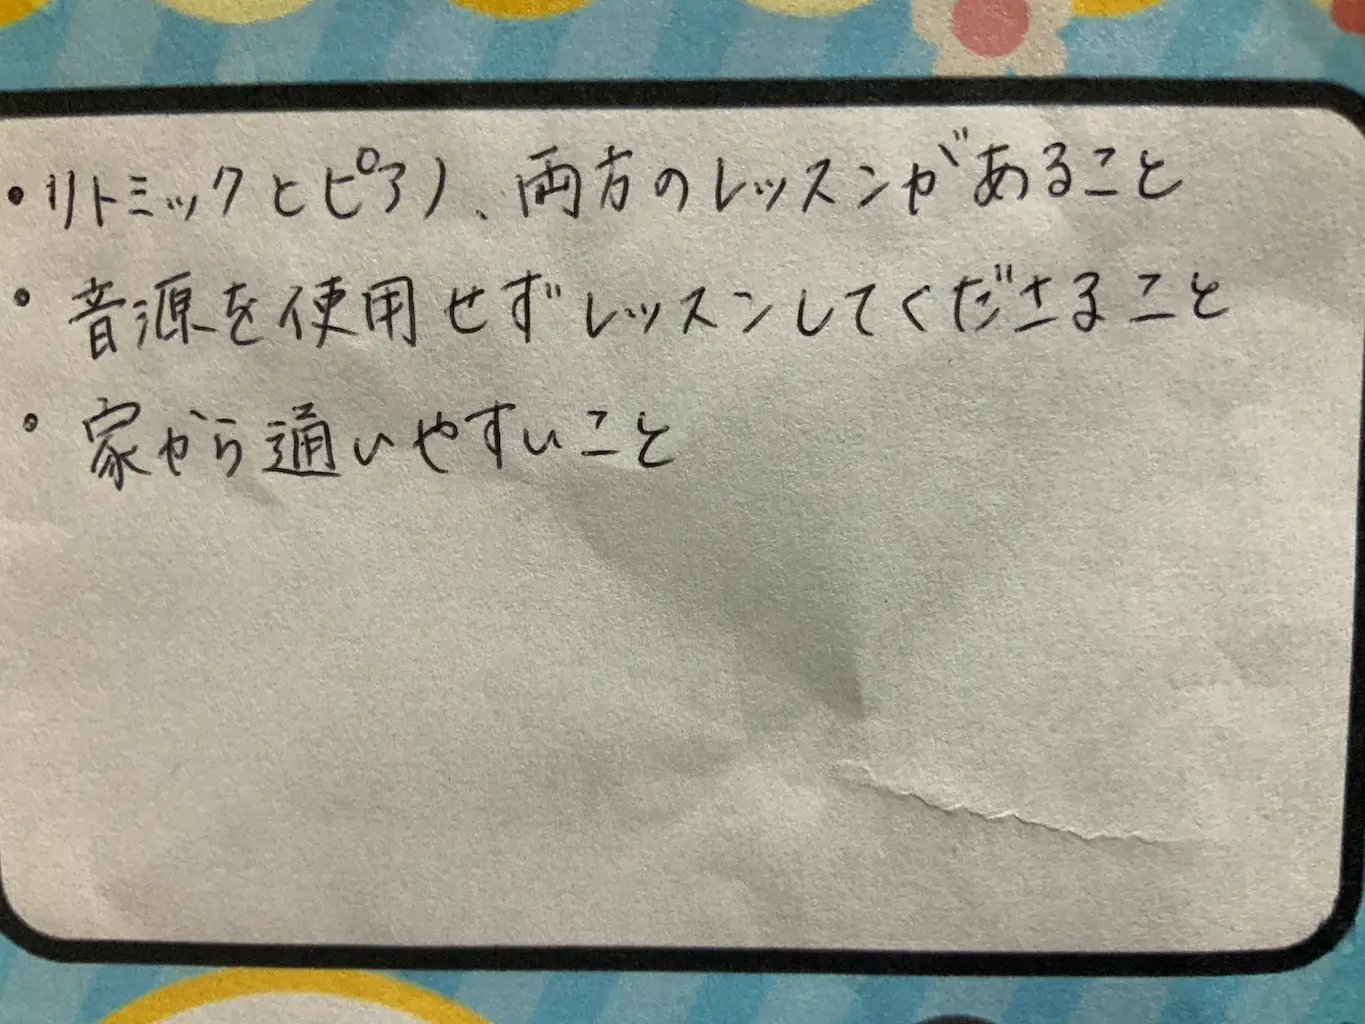 ・リトミックとピアノ、両方のレッスンがあること
・音源を使用せずレッスンしてくださること
・家から通いやすいこと